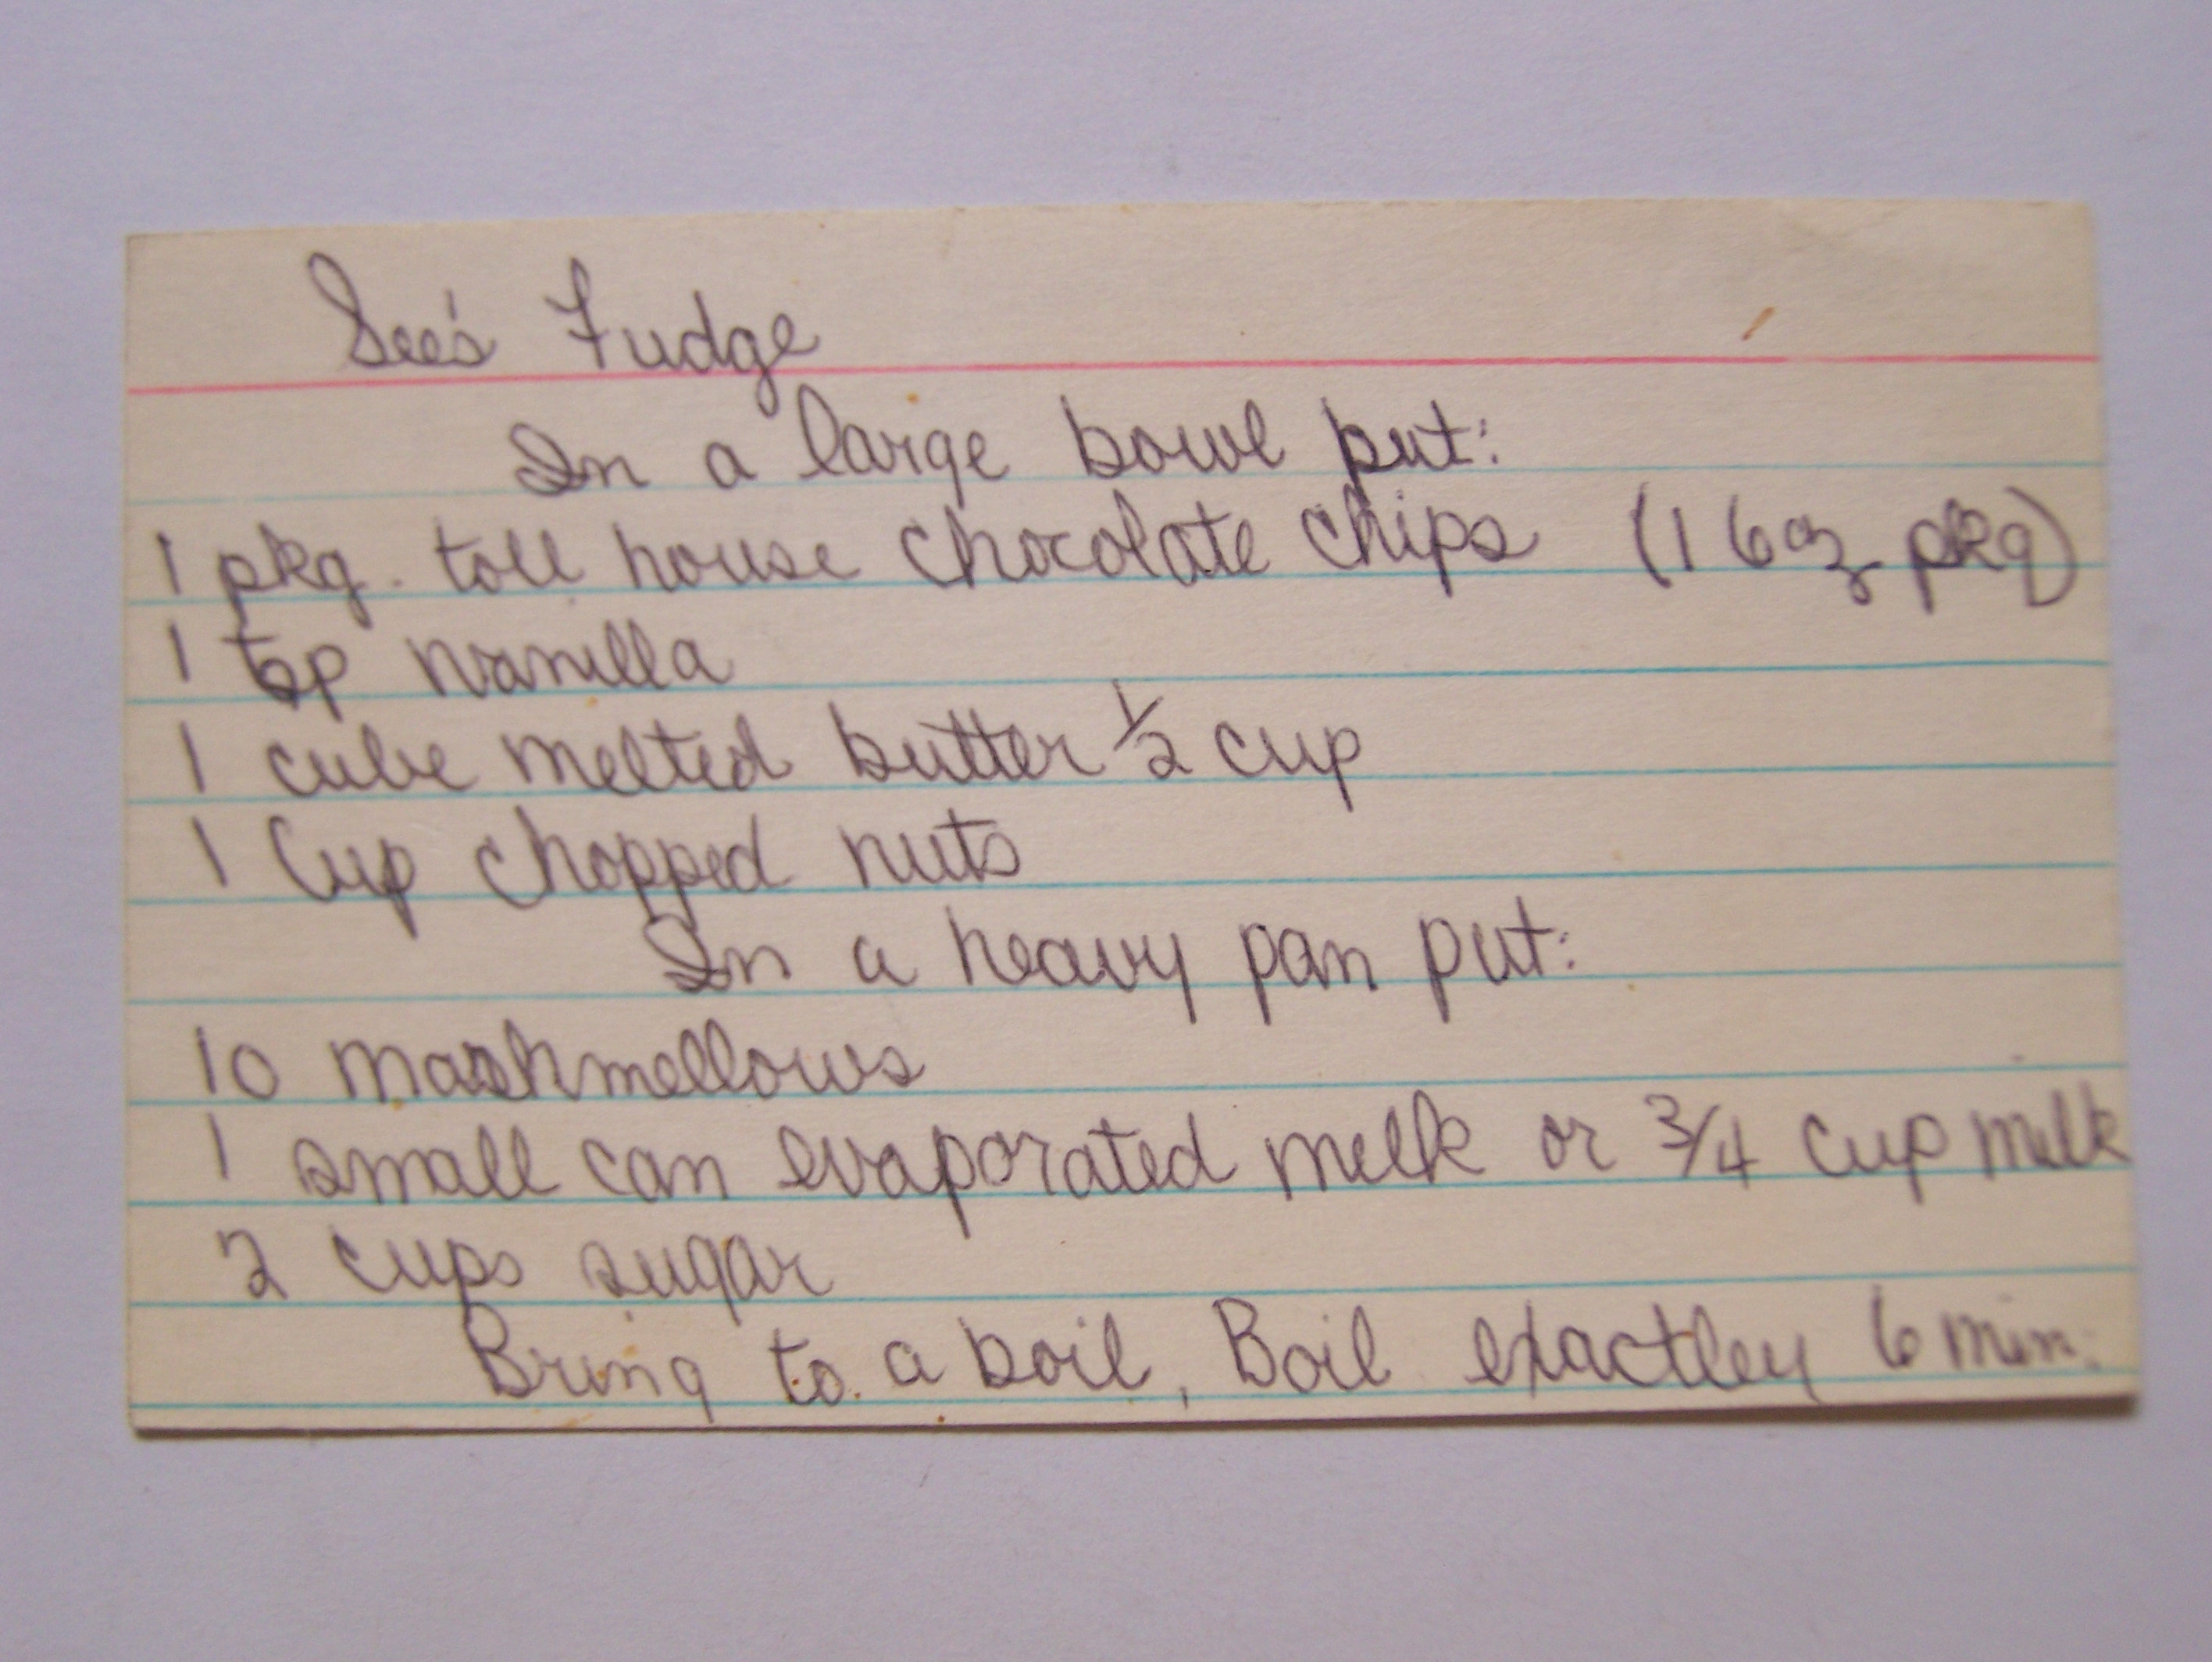 See's Fudge
In a large bowl put:
1 pkg. toll house chocolate chips (1 6 oz pkg)
1 tsp vanilla
1 cube melted butter 1/2 cup
1 Cup chopped nuts
In a heavy pan put:
10 marshmellows
1 small can evaporated milk or 3/4 cup milk
2 cups sugar
Bring to a boil, Boil exactley 6 min.